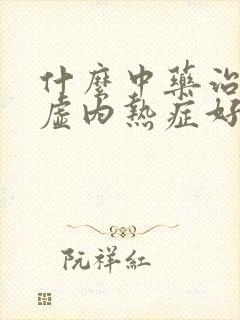 什麼中藥治
虛內熱症好
阮祥紅